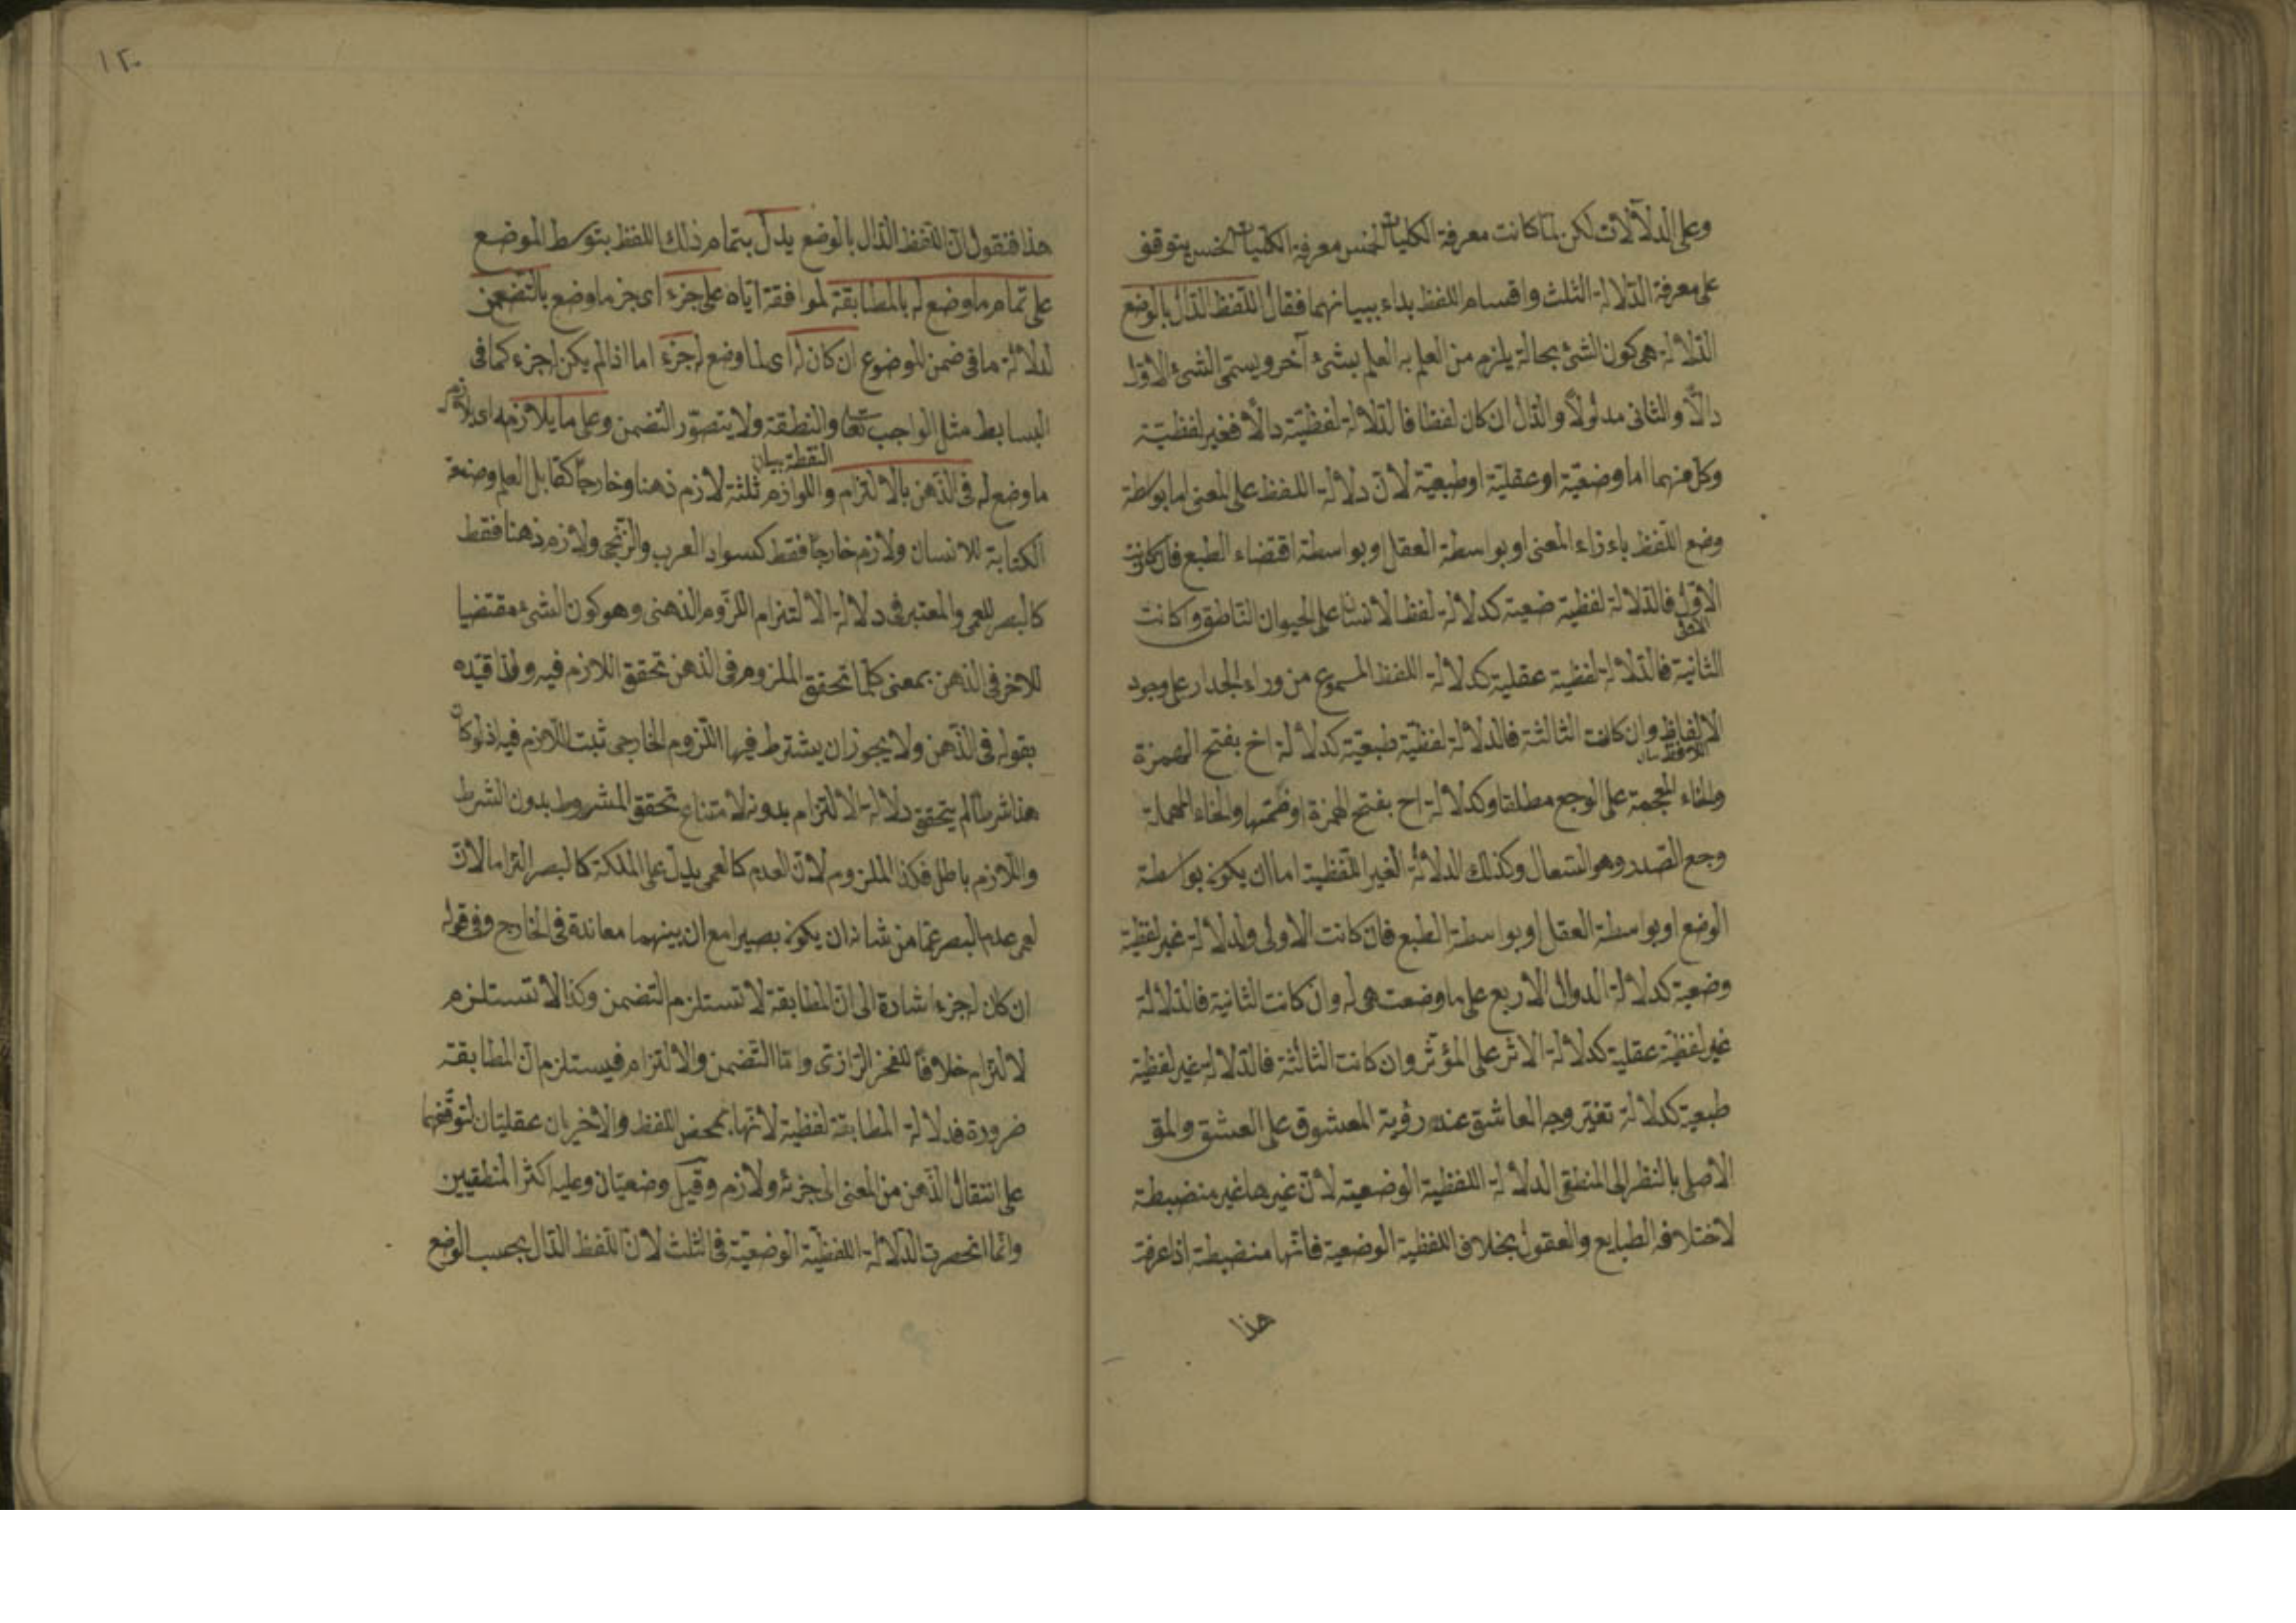 وعلى الدلالات لكن لما كانت معرفة الكليات الخمس معرفة الكليات الخمس يتوقف
على معرفة الدلالة الثلث واقسام اللفظ بداء ببيانهما فقال اللفظ الدال بالوضع
الدلالة هى كون الشئ بحالة يلزم من العلم به العلم بشئ آخر ويسمى الشئ الاول
دالا والثانى مدلولا والدال ان كان لفظا فالدلالة لفظية دالا فغير لفظية
وكل منهما اما وضعية او عقلية او طبعية لان دلالة اللفظ على المعنى اما بواسطة
وضع اللفظ باءزاء المعنى او بواسطة العقل او بواسطة اقتضاء الطبع فان كانت
الاول فالدلالة لفظية ضعية كدلالة لفظ الانسان على الحيوان الناطق وكانت
الاولى
الثانية فالدلالة لفظية عقلية كدلالة اللفظ المسموع من وراء الجدار على وجود
الالفاظ وان كانت الثالثة فالدلالة لفظية طبعية كدلالة اخ بفتح الهمزة
والخاء المعجمة على الوجع مطلقا وكدلالة اح بفتح الهمزة او ضمتها والحاء المهملة
وجع الصدر وهو السعال وكذلك الدلالة الغير اللفظية اما ان يكون بواسطة
الوضع او بواسطة العقل او بواسطة الطبع فان كانت الاولى ولدلالة غير لفظية
وضعية كدلالة الدوال الاربع على ما وضعت هى له وان كانت الثانية فالدلالة
غير لفظية عقلية كدلالة الاثر على المؤثر وان كانت الثالثة فالدلالة غير لفظية
طبعية كدلالة تغير وجه العاشق عند رؤية المعشوق على العشق والمق
الاصلى بالنظر الى المنطقى الدلالة اللفظية الوضعية لان غيرها غير منضبطة
لاختلاف الطبايع والعقول بخلاف اللفظية الوضعية فانها منضبطة اذا عرفت
هذا
١٢٠
هذا فنقول ان اللفظ الدال بالوضع يدل بتمام ذلك اللفظ بتوسط الموضع
على تمام ما وضع له بالمطابقة لموافقة اياه على جزء اى جز ما وضع بالتضمن
لدلالة ما فى ضمن الموضوع ان كان له اى لما وضع له جزء اما اذا لم يكن له جزء كما فى
البسايط مثل الواجب تعا والنطقة ولا يتصور التضمن وعلى ما يلازمه اى يلازم
النقطة بيان
ما وضع له فى الذهن بالالتزام واللوازم ثلثة لازم ذهنا وخارجا كقابل العلم وصنعة
الكتابة للانسان ولازم خارجا فقط كسواد العرب والزنجى ولازم ذهنا فقط
كالبصر للعمى والمعتبر فى دلالة الالتزام اللزوم الذهنى وهو كون الشئ مقتضيا
للاخر فى الذهن بمعنى كلما تحقق الملزوم فى الذهن تحقق اللازم فيه ولذا قيده
بقوله فى الذهن ولا يجوز ان يشترط فيها اللزوم الخارجى ثبت اللازم فيه اذ لو كان
هذا شرطا لم يتحقق دلالة الالتزام بدونه لامتناع تحقق المشروط بدون الشرط
واللازم باطل فكذا الملزوم لان العدم كالعمى يدل على الملكة كالبصر التزاما لان
لعمى عدم البصر عما من شانه ان يكون بصيرا مع ان بينهما معاندة فى الخارج وفى قوله
ان كان له جزء اشارة الى ان المطابقة لا تستلزم التضمن وكذا لا تستلزم
لالتزام خلافا للفخر الرازى واما التضمن والالتزام فيستلزم ان المطابقة
ضرورة فدلالة المطابقة لفظية لانها بمحض اللفظ والاخريان عقليتان لتوقفهما
على انتقال الذهن من المعنى الى جزئه ولازم وقيل وضعيتان وعليه اكثر المنطقيين
وانما انحصرت الدلالة اللفظية الوضعية فى الثلث لان اللفظ الدال بحسب الوضع